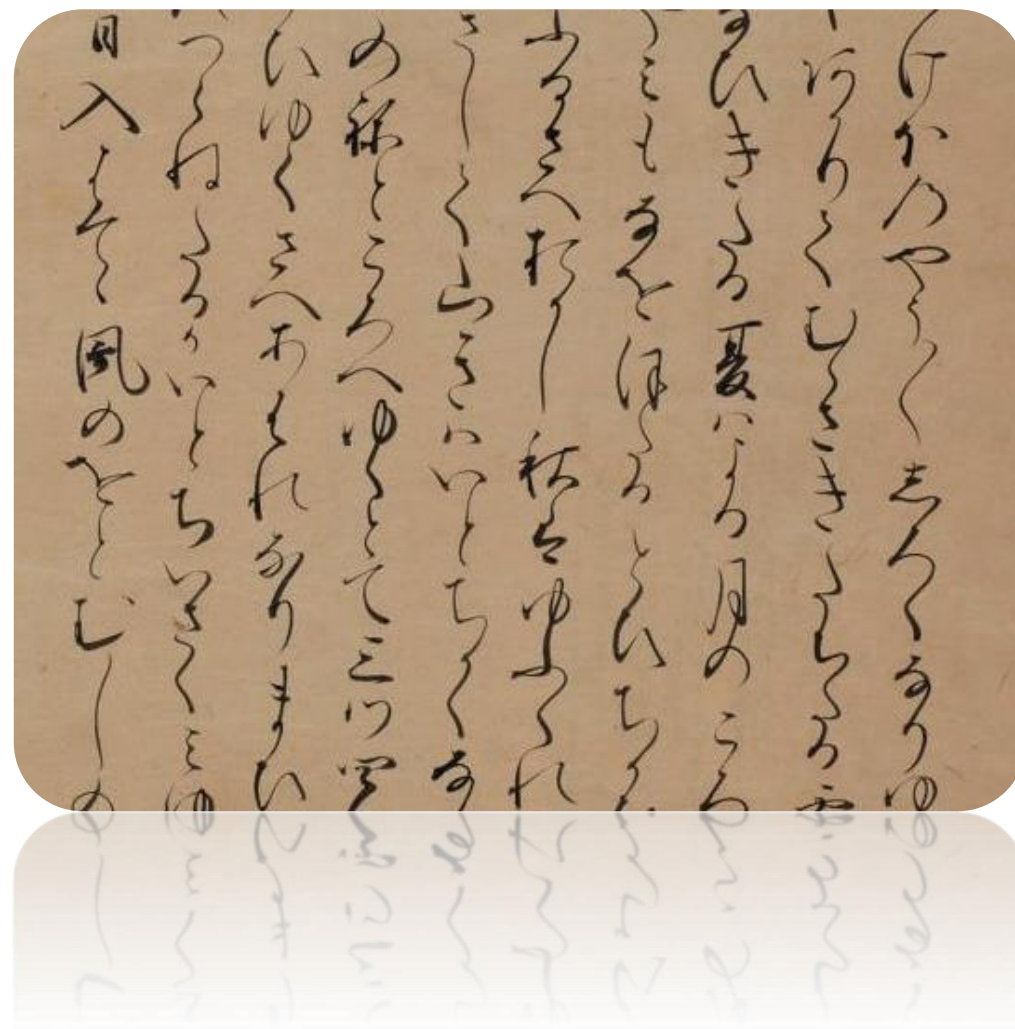 けほのやう〱しろくなりゆ
あかりてむらさきたちたる雲
なひきたる夏はよる月のころ
やみもなをほたるとひちか
ふるさへおかし秋はゆふくれ
さしてく山きはいとちかくな
のねところへゆくとて三つ四
ひゆくさへあはれなりまひ
つらねたるかいとちいさくみゆ
日入はてゝ風のをとむしの